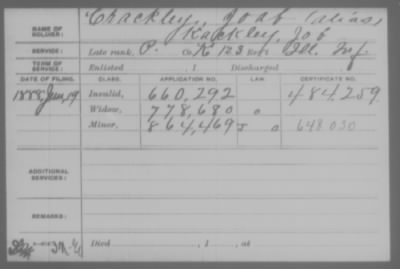 Crackley, Joab (alias,
NAME OF SOLDIER: Kackley, Job
SERVICE: Late rank, P. Co. K 123 Reg't Ill. Inf.
TERM OF SERVICE: Enlisted , 1 Discharged
DATE OF FILING. CLASS. APPLICATION NO. LAW. CERTIFICATE NO.
1888 Jun 19 Invalid, 660,292 484,259
Widow, 778,680 0
Minor, 864,469 J 0 648030
ADDITIONAL SERVICES:
REMARKS:
Died , 1 , at